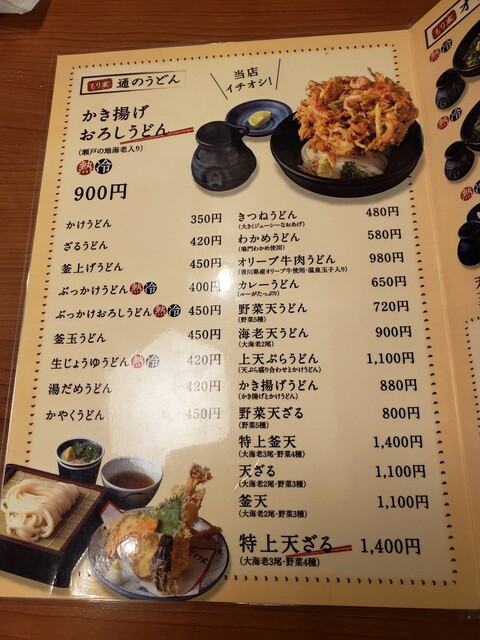 もり家 通のうどん
当店
イチオシ!
かき揚げ
おろしうどん
(瀬戸の地海老入り)
熱 冷
900円
かけうどん 350円
ざるうどん 420円
釜上げうどん 450円
ぶっかけうどん 熱 冷 400円
ぶっかけおろしうどん 熱 冷 450円
釜玉うどん 450円
生じょうゆうどん 熱 冷 420円
湯だめうどん 420円
かやくうどん 450円
きつねうどん 480円
(大きくジューシーなおあげ)
わかめうどん 580円
(鳴門わかめ使用)
オリーブ牛肉うどん 980円
(香川県産オリーブ牛使用・温泉玉子入り)
カレーうどん 650円
(ルーがたっぷり)
野菜天うどん 720円
(野菜5種)
海老天うどん 900円
(大海老2尾)
上天ぷらうどん 1,100円
(天ぷら盛り合わせとかけうどん)
かき揚げうどん 880円
(かき揚げとかけうどん)
野菜天ざる 800円
(野菜5種)
特上釜天 1,400円
(大海老3尾・野菜4種)
天ざる 1,100円
(大海老2尾・野菜3種)
釜天 1,100円
(大海老2尾・野菜3種)
特上天ざる 1,400円
(大海老3尾・野菜4種)
もり家 オ
熱 冷
熱 冷
熱 冷